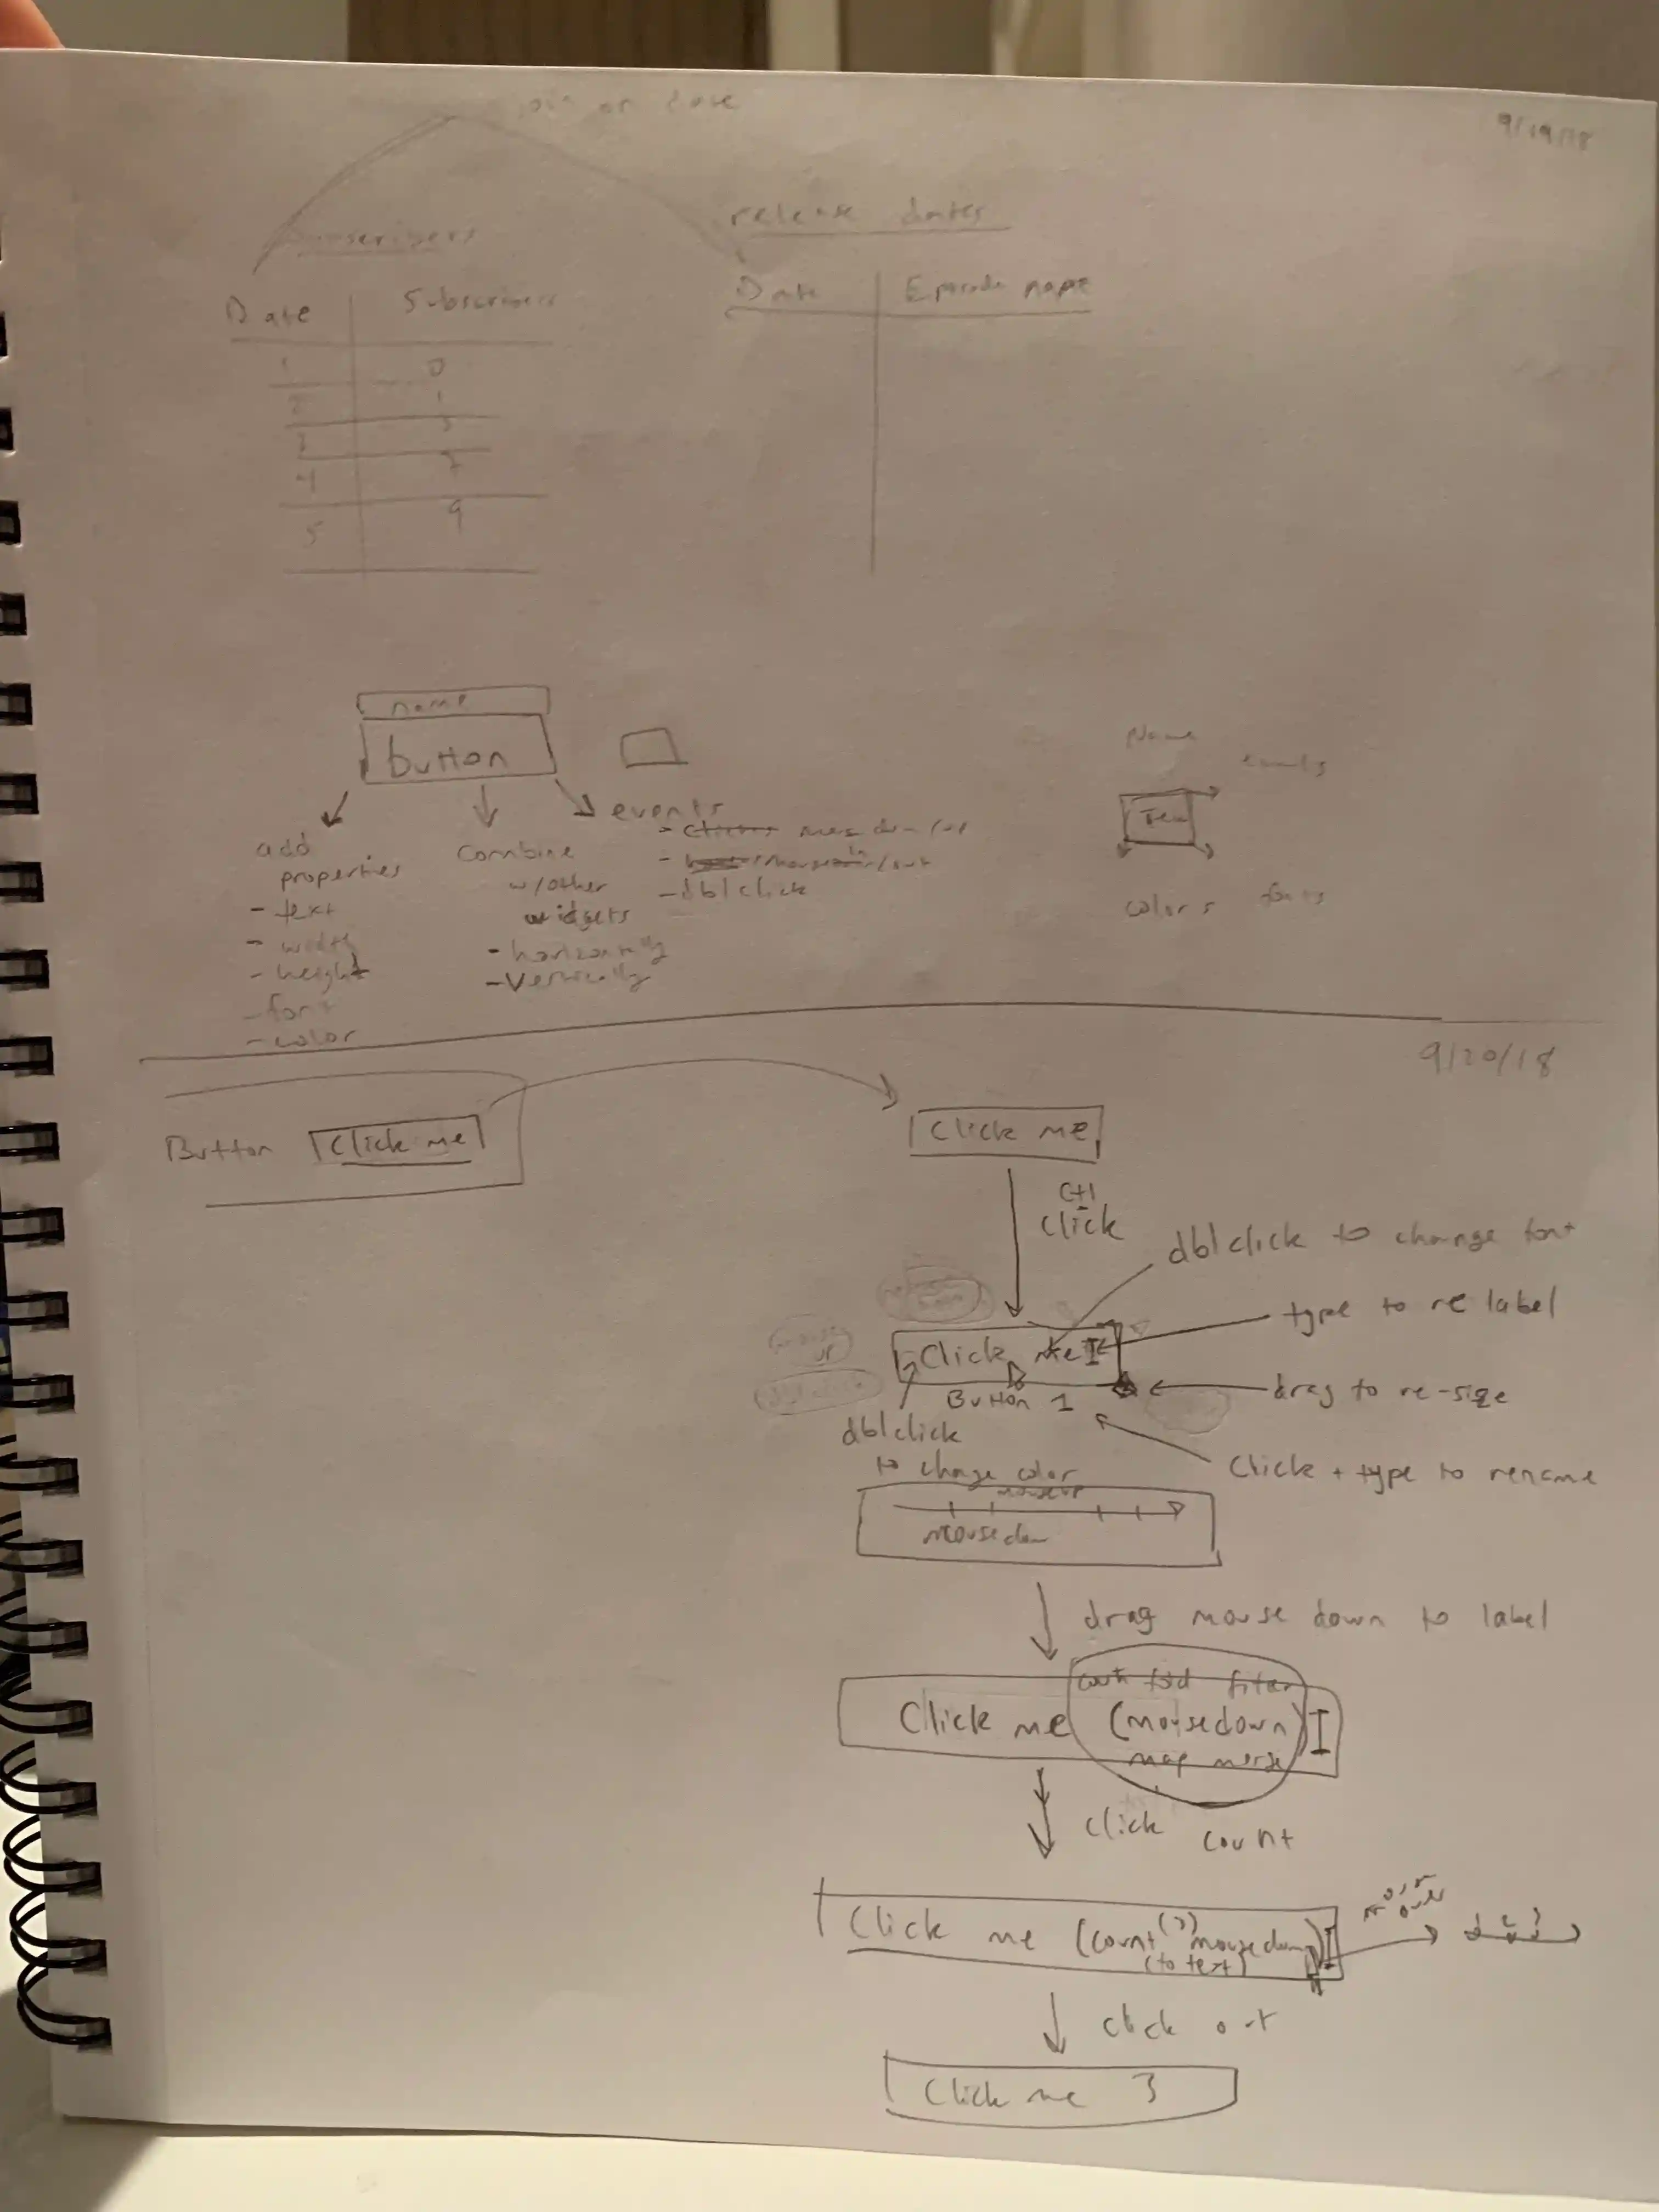 join or
9/19/18
Subscribers
release dates
Date Subscribers
Date Episode name
1 0
2 1
3
4 7
5 9
name
button
events
- mouse down/up
- dblclick
add
properties
- text
- width
- height
- font
- color
combine
w/other
widgets
- horizontally
- vertically
Name
events
Text
colors fonts
9/20/18
Button Click me
Click me
ctrl
click
dblclick to change font
type to re label
Click me
Button 1
drag to re-size
dblclick
to change color
Click + type to rename
mouse up
mouse down
drag mouse down to label
count fold filter
Click me (mousedown)
map merge
click count
Click me (count (3) mousedown)
(to text)
click out
Click me 3